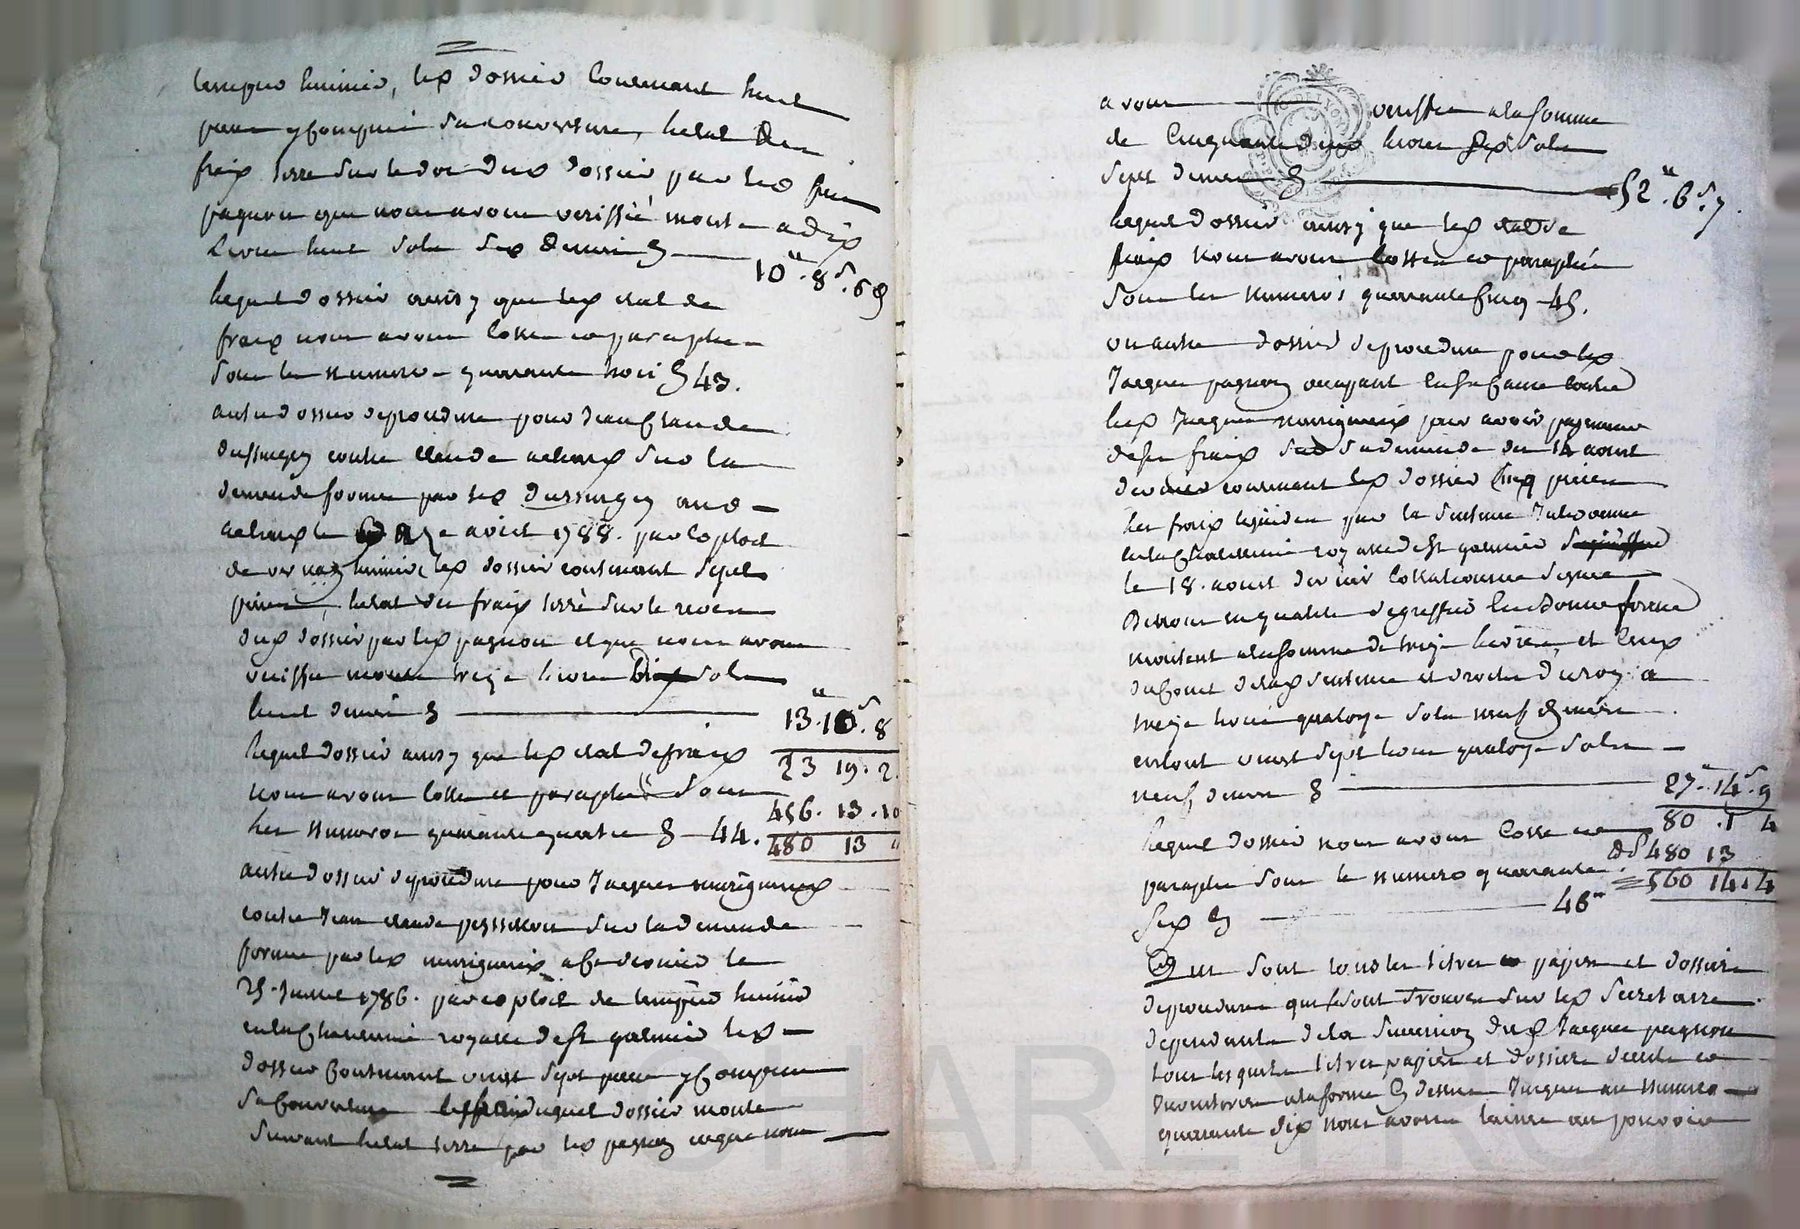 huissier, led dossier contenant huit
pieces y compris sa couverture, l'etat des
frais tirré sur le dos dud dossier par led feu
pagnon que nous avons veriffié monte a dix
livres huit sols six deniers 10ll. 8s. 6d
lequel dossier ainsy que led etat de
frais nous avons cotté et paraphé
sous le numero quarante trois 43.
autre dossier de procedure pour Jean Claude
dussurgey contre Claude sur la
demande formée par led dussurgey aud
le avril 1788. par exploit
de huissier, led dossier contenant sept
pieces, l'etat des frais tirré sur le revers
dud dossier par led pagnon et que nous avons
veriffié monte treize livres dix sols
huit deniers 13ll. 10s. 8
lequel dossier ainsy que led etat de frais 23 19. 2.
nous avons cotté et paraphé sous
les numeros quarante quatre 44. 456. 13. 10
480 13
autre dossier de procedure pour Jacques
contre Jean Claude sur la demande
formée par led a ce dernier le
25. Juillet 1786. par exploit de huissier
en la Chatelenie royalle de St galmier led
dossier contenant vingt sept pieces y compris
sa couverture les frais duquel dossier monte
suivant l'etat tirré par led pagnon et que nous
avons veriffié a la somme
de Cinquante deux livres six sols
sept deniers 52ll. 6s. 7.
lequel dossier ainsy que led etat de
frais nous avons cotté et paraphé
sous les numeros quarante cinq 45.
un autre dossier de procedure pour led
Jacques pagnon occupant en sa cause contre
led Jacques pour avoir payement
de ses frais sur sa demande du 14 aoust
dernier contenant led dossier cinq pieces
les frais liquidés par la sentence
en la Chatelenie royalle de St galmier
le 18. aoust dernier collationnée signée
en qualité de greffier en bonne forme
montent a la somme de treize livres, et ceux
du Cout de lad sentence et droits du roy a
treize livres quatorze sols neuf deniers
en tout vingt sept livres quatorze sols
neuf deniers 27ll. 14s. 9
lequel dossier nous avons cotté et 80 . 1 4
paraphé sous le numero quarante 480 13
560 14. 4
six 46
Qui sont tous les titres papiers et dossiers
de procedure qui se sont trouvés sur led secretaire
dependants de la succession dud Jacques pagnon
tous lesquels titres papiers et dossiers decrits et
inventoriés a la forme cy dessus jusques au numero
quarante six nous avons laissé au pouvoir